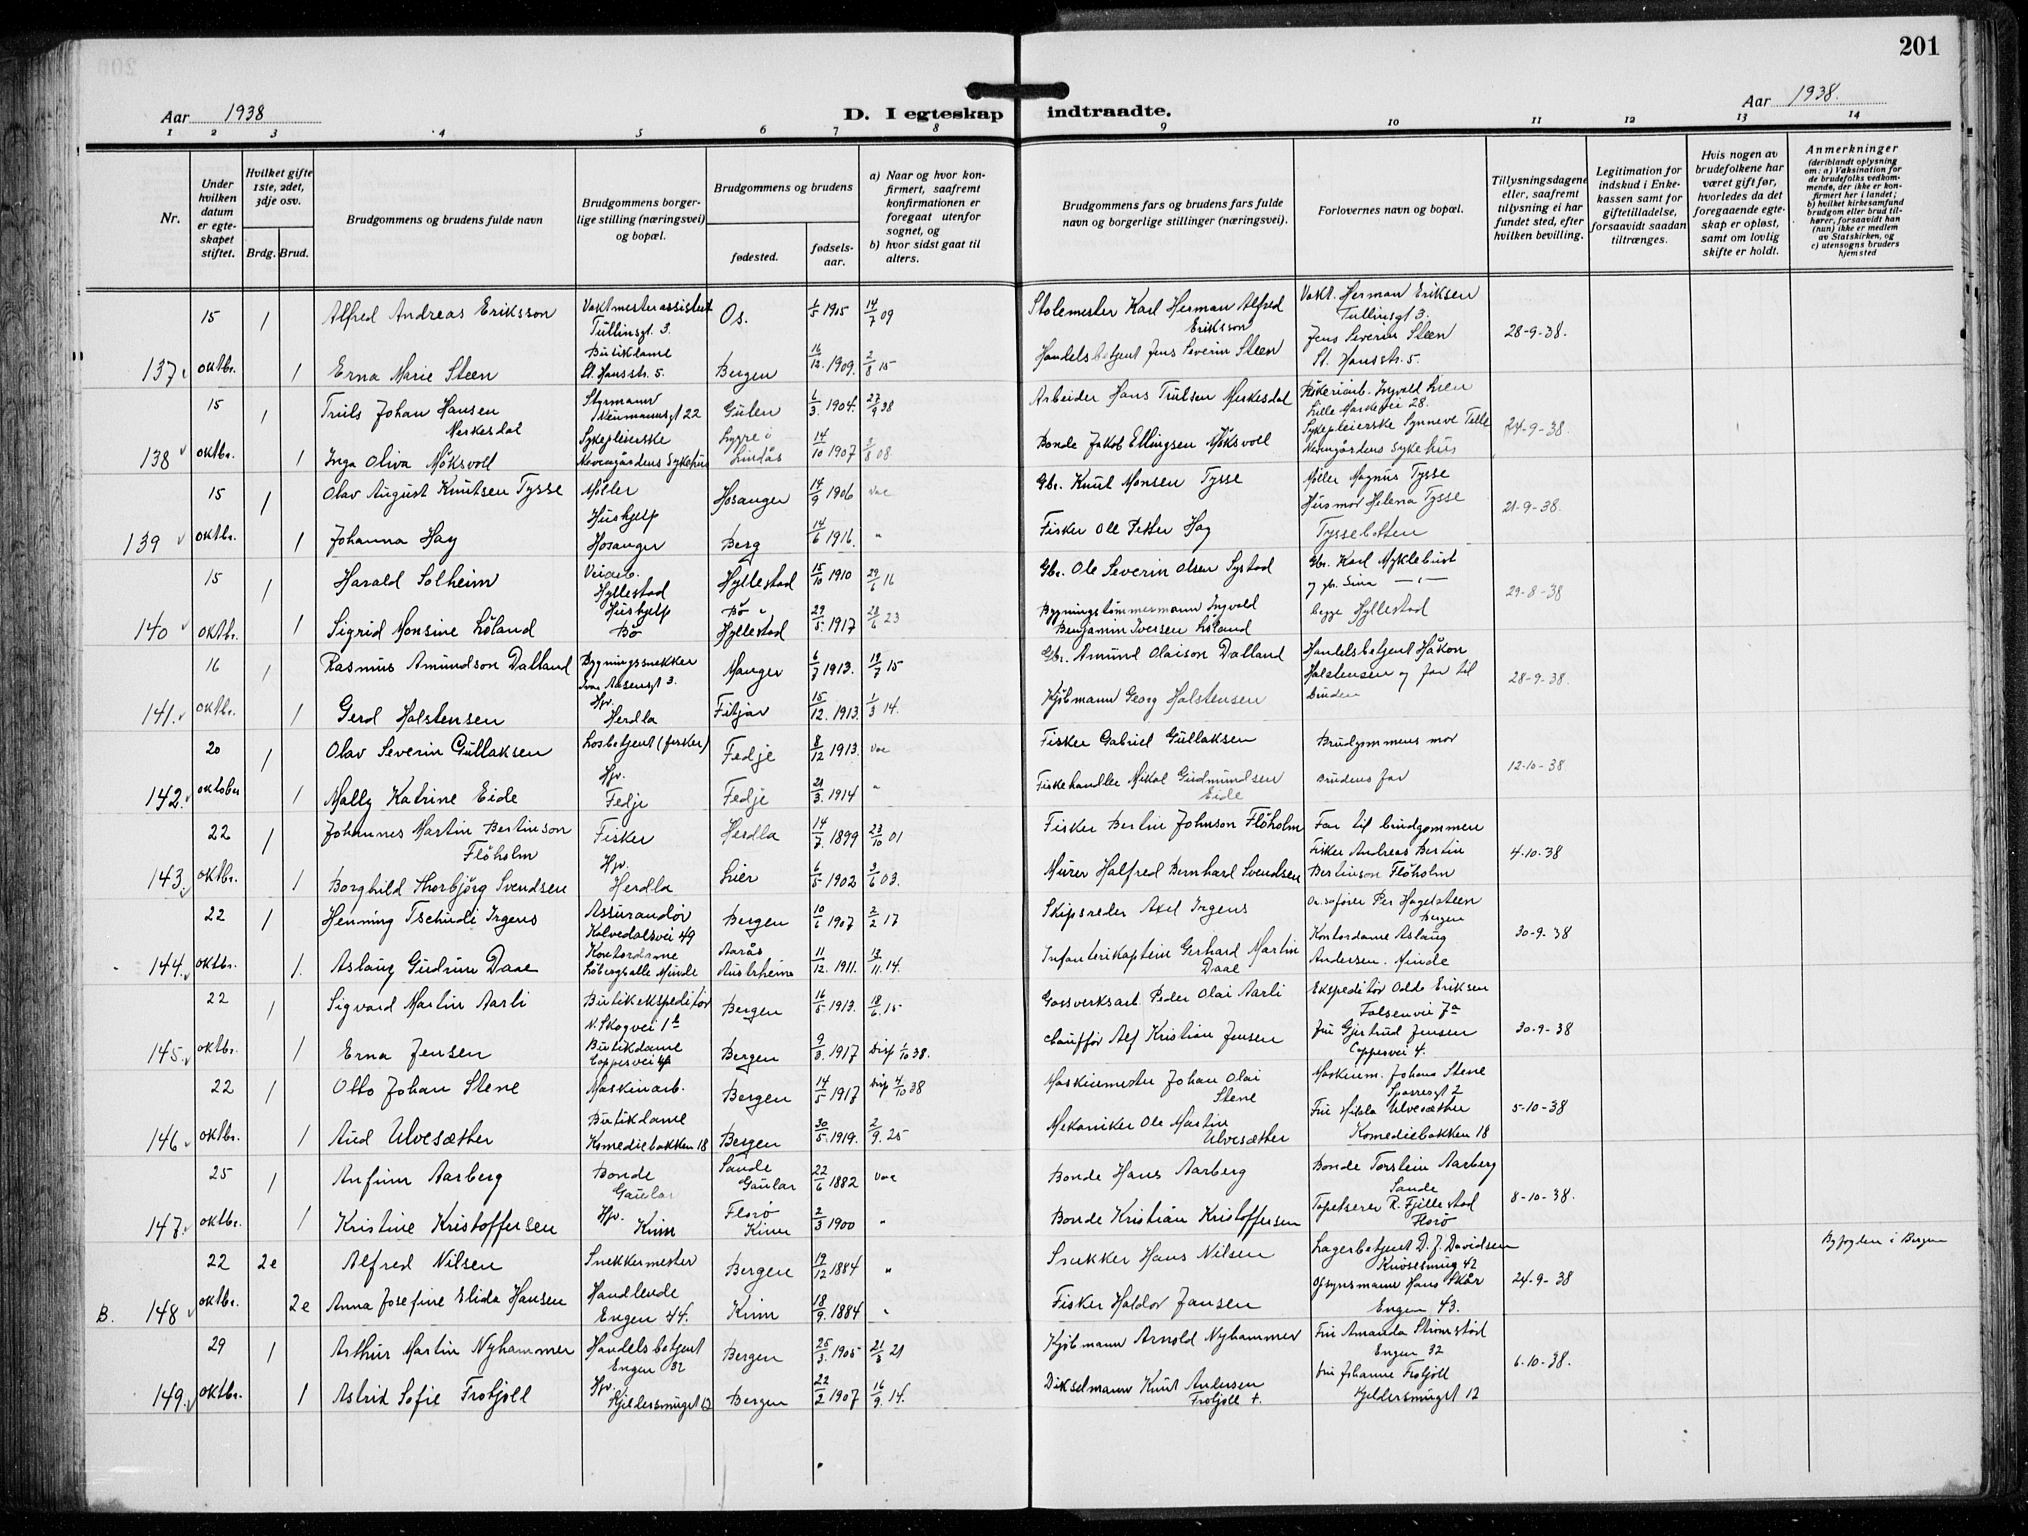 201
Aar 1938
D. I egteskap indtraadte.
Aar 1938.
1 2 3 4 5 6 7 8 9 10 11 12 13 14
Nr.
Under hvilken datum er egteskapet stiftet.
Hvilket gifte 1ste, 2det, 3dje osv.
Brdg. Brud.
Brudgommens og brudens fulde navn
Brudgommens borgerlige stilling (næringsvei) og bopæl.
Brudgommens og brudens
fødested.
fødselsaar.
a) Naar og hvor konfirmert, saafremt konfirmationen er foregaat utenfor sognet, og
b) hvor sidst gaat til alters.
Brudgommens fars og brudens fars fulde navn og borgerlige stillinger (næringsvei).
Forlovernes navn og bopæl.
Tillysningsdagene eller, saafremt tillysning ei har fundet sted, efter hvilken bevilling.
Legitimation for indskud i Enkekassen samt for giftetilladelse, forsaavidt saadan tiltrænges.
Hvis nogen av brudefolkene har været gift før, hvorledes da det foregaaende egteskap er opløst, samt om lovlig skifte er holdt.
Anmerkninger
(deriblandt oplysning om: a) Vaksination for de brudefolks vedkommende, der ikke er konfirmert her i landet; b) hvilket kirkesamfund brudgom eller brud tilhører, forsaavidt han (hun) ikke er medlem av Statskirken, og c) utensogns bruders hjemsted
15 1 Alfred Andreas Eriksson Vaktmesterassistent Tullinsgt. 3. Os. 1/5 1905 14/7 09 Stolemester Karl Herman Alfred Eriksson Vakt. Herman Eriksen Tullinsgt 3.
28-9-38.
137 oktbr. 1 Erna Marie Steen Butikdame St. Hansstr. 5 Bergen 16/12 1909. 2/8 15 Handelsbetjent Jens Severin Steen Jens Severin Steen St. Hansstr. 5.
15 1 Truls Johan Hansen Merkesdal Styrmann 22 Gulen 6/3 1904. 27/9 38 Arbeider Hans Trulsen Merkesdal Ingvald Lien Lille Markevei 28.
24-9-38.
138 oktbr. 1 Inga Oliva Møksvoll Sykepleierske Nevengårdens Sykehus Lygre i Lindås 14/10 1907 2/8 08 Bonde Jakob Ellingsen Møksvoll Sykepleierske Synneve Telle Nevengårdens Sykehus
15 1 Olav August Knutsen Tysse Møller Hosanger 14/9 1906 vac Gbr. Knut Monsen Tysse Møller Magnus Tysse
21-9-38.
139 oktbr. 1 Johanna Hay Hushjelp Hosanger Berg 14/6 1916. " Fisker Ole Peter Hay Husmor Helena Tysse Tyssebotten
15 1 Harald Solheim Veiarb. Hyllestad Hyllestad 15/10 1910 29/6 16 Gbr. Ole Severin Olsen Systad Gbr. Karl Myklebust
29-8-38
140 oktbr. 1 Sigrid Monsine Løland Hushjelp Bø Bø " Hyllestad 29/5 1917 28/6 23 Bygningstømmermann Ingvald Benjamin Iversen Løland og gb. Sina —"— begge Hyllestad
16 1 Rasmus Amundson Dalland Bygningssnekker Ivar Aasensgt 3. Manger 6/7 1913. 19/7 15 Gbr. Amund Olaison Dalland Handelsbetjent Håkon
28-9-38.
141. oktbr. 1 Gerd Halstensen Hpr. Herdla Fitjar 15/12. 1913. 1/3 14. Kjøbmann Georg Halstensen Halstensen og far til bruden
20 1 Olav Severin Gullaksen Losbetjent (fisker) Fedje 8/12 1913. vac Fisker Gabriel Gullaksen Brudgommens mor
12-10-38
142. oktober 1 Mally Katrine Eide Hpr. Fedje Fedje 21/3. 1914 " Fiskehandler Mikal Gudmundsen Eide Brudens far
22 1 Johannes Martin Bertinson Fløholm Fisker Herdla 14/7. 1899 23/10 01 Fisker Bertin Johnson Fløholm Far til brudgommen
4-10-38
143. oktbr. 1 Borghild Thorbjörg Svendsen Hpr. Herdla Lier 6/5 1902 3/6 03. Murer Halfred Bernhard Svendsen Fisker Andreas Bertin Bertinson Fløholm
22 1 Henning Tschudi Irgens Assurandør Kalvedalsvei 49 Bergen 10/6 1907 2/2 17 Skipsreder Axel Irgens Per Hagelsteen Bergen
30-9-38
144. oktbr. 1. Aslaug Gudrun Daae Kontordame Løbergsalle Minde Aarås Austrheim 11/12. 1911. 14. Infanterikaptein Gerhard Martin Daae Kontordame Aslaug Andersen. Minde
22 1 Sigvard Martin Aarli Butikekspeditør N. Skogvei 1b Bergen 16/5 1913. 18/6. 15 Gassverksarb. Peder Olai Aarli Ekspeditør Odd Eriksen Falsenvei 7a
30-9-38
145. oktbr. 1 Erna Jensen Butikdame Coppesvei 4 Bergen 9/3. 1917 Disp 1/10 38. Chauffør Alf Kristian Jensen Fru Gjertrud Jensen Coppesvei 4.
22 1 Otto Johan Stene Maskinarb. Bergen 14/5 1917 Disp 4/10 38 Maskinmester Johan Olai Stene Maskinm. Johan Stene Sparresgt 2
5-10-38
146 oktbr. 1 Aud Ulvesæther Butikdame Komediebakken 18 Bergen 30/5. 1919. 2/9. 25 Mekaniker Ole Martin Ulvesæther Fru Hilda Ulvesæther Komediebakken 18
25 1 Anfinn Aarberg Bonde Gaular Sande Gaular 22/6 1882 vac Bonde Hans Aarberg Bonde Torstein Aarberg Sande
8-10-38.
147. oktbr. 1 Kristine Kristoffersen Hpr. Kinn Florø Kinn 2/3 1900 " Bonde Kristian Kristoffersen Tapetserer R. Fjellestad Florø
22 2e Alfred Nilsen Snekkermester Bergen 19/12 1884 " Snekker Hans Nilsen Lagerbetjent D. J. Davidsen Knøsesmug 42 Byfogden i Bergen
24-9-38
B. 148 oktbr. 2e Anna Josefine Elida Hansen Handlende Engen 44. Kinn 18/9. 1884 " Fisker Haldor Jansen Opsynsmann Hans Skår Engen 43.
29 1 Arthur Martin Nyhammer Handelsbetjent Engen 32 Bergen 25/3. 1905 21/3 21 Kjøbmann Arnold Nyhammer Fru Amanda Strømstad Engen 32
6-10-38.
149. oktbr. 1 Astrid Sofie Trohjell Hpr. Kjeldersmuget 12 Bergen 22/2 1907 16/9. 14. Dikselmann Knut Andersen Trohjell +. Fru Johanne Trohjell Kjeldersmuget 12